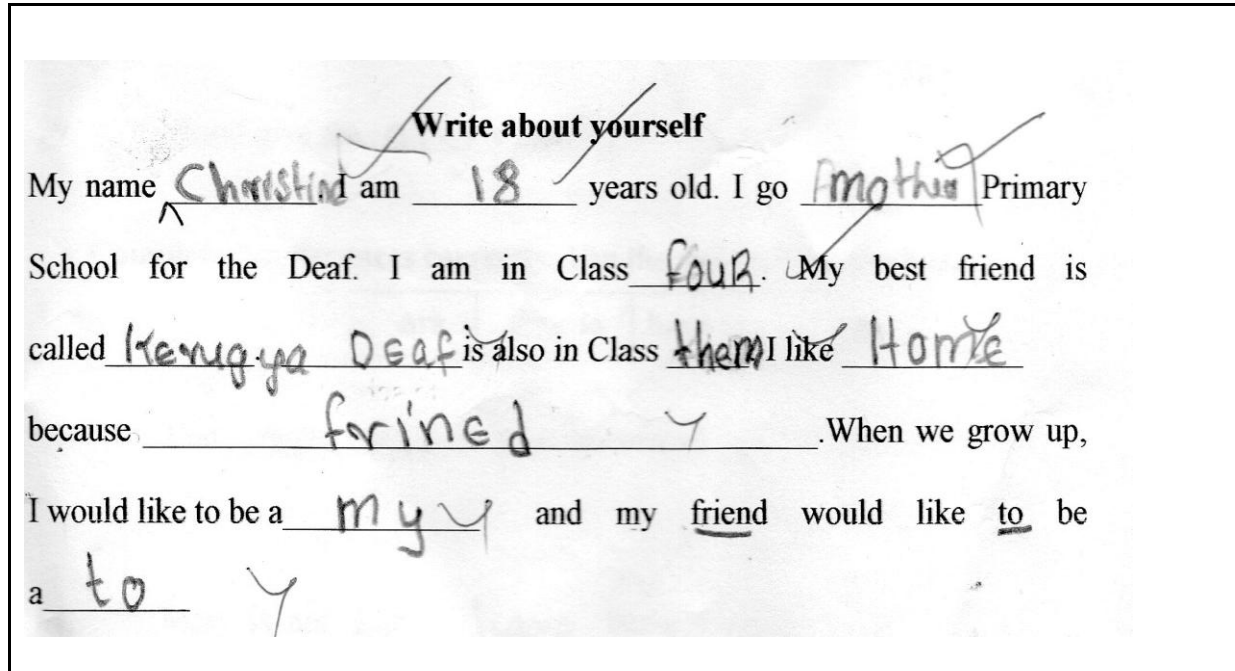 Write about yourself
My name Christine I am 18 years old. I go mother Primary
School for the Deaf. I am in Class fouR. My best friend is
called Kerugya DEaf is also in Class them I like HomE
because frinEd .When we grow up,
I would like to be a my and my friend would like to be
a to